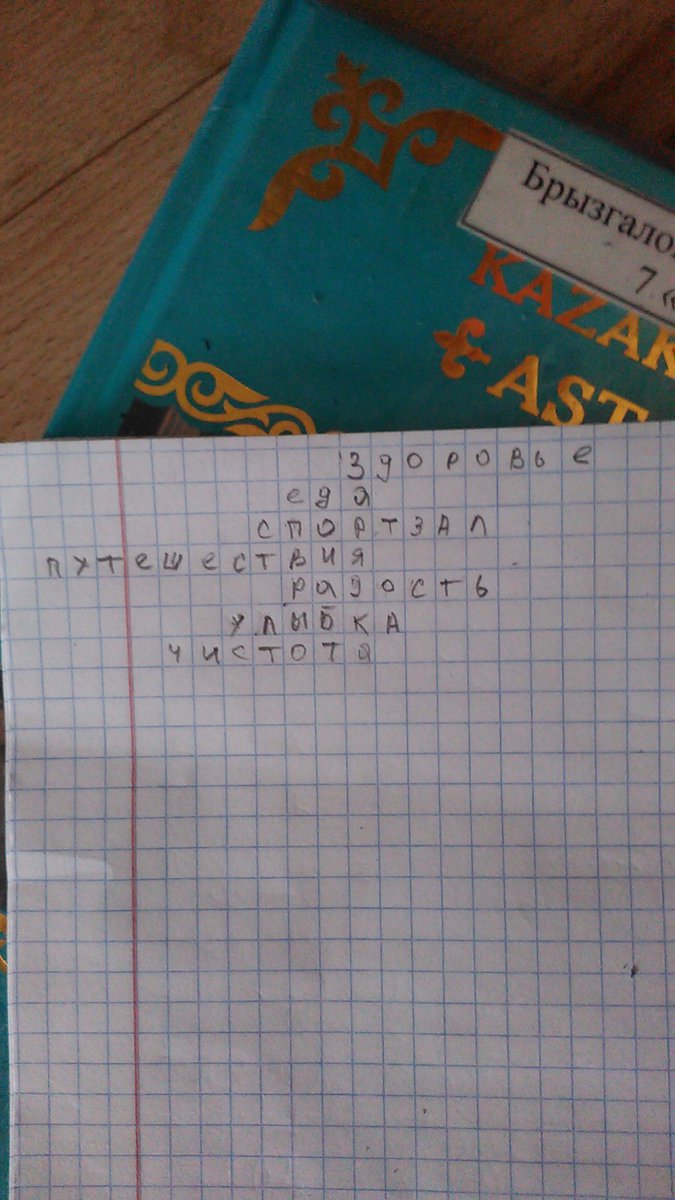 Брызгало
7 «
KAZAK
AST
здоровье
еда
спортзал
путешествия
радость
улыбка
чистота